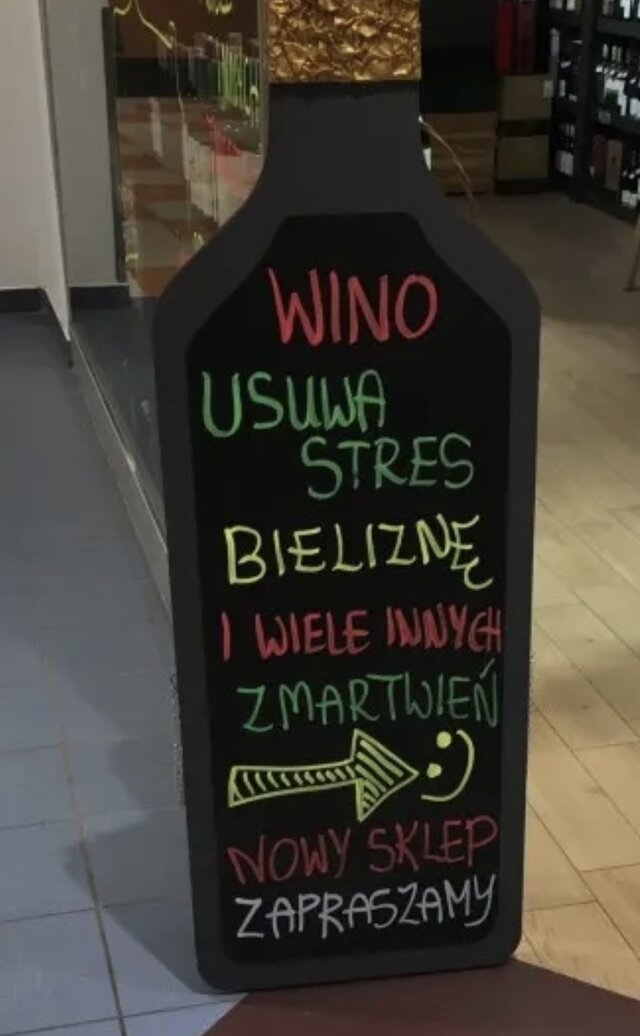 WINO
USUWA
STRES
BIELIZNĘ
I WIELE INNYCH
ZMARTWIEŃ
:)
NOWY SKLEP
ZAPRASZAMY